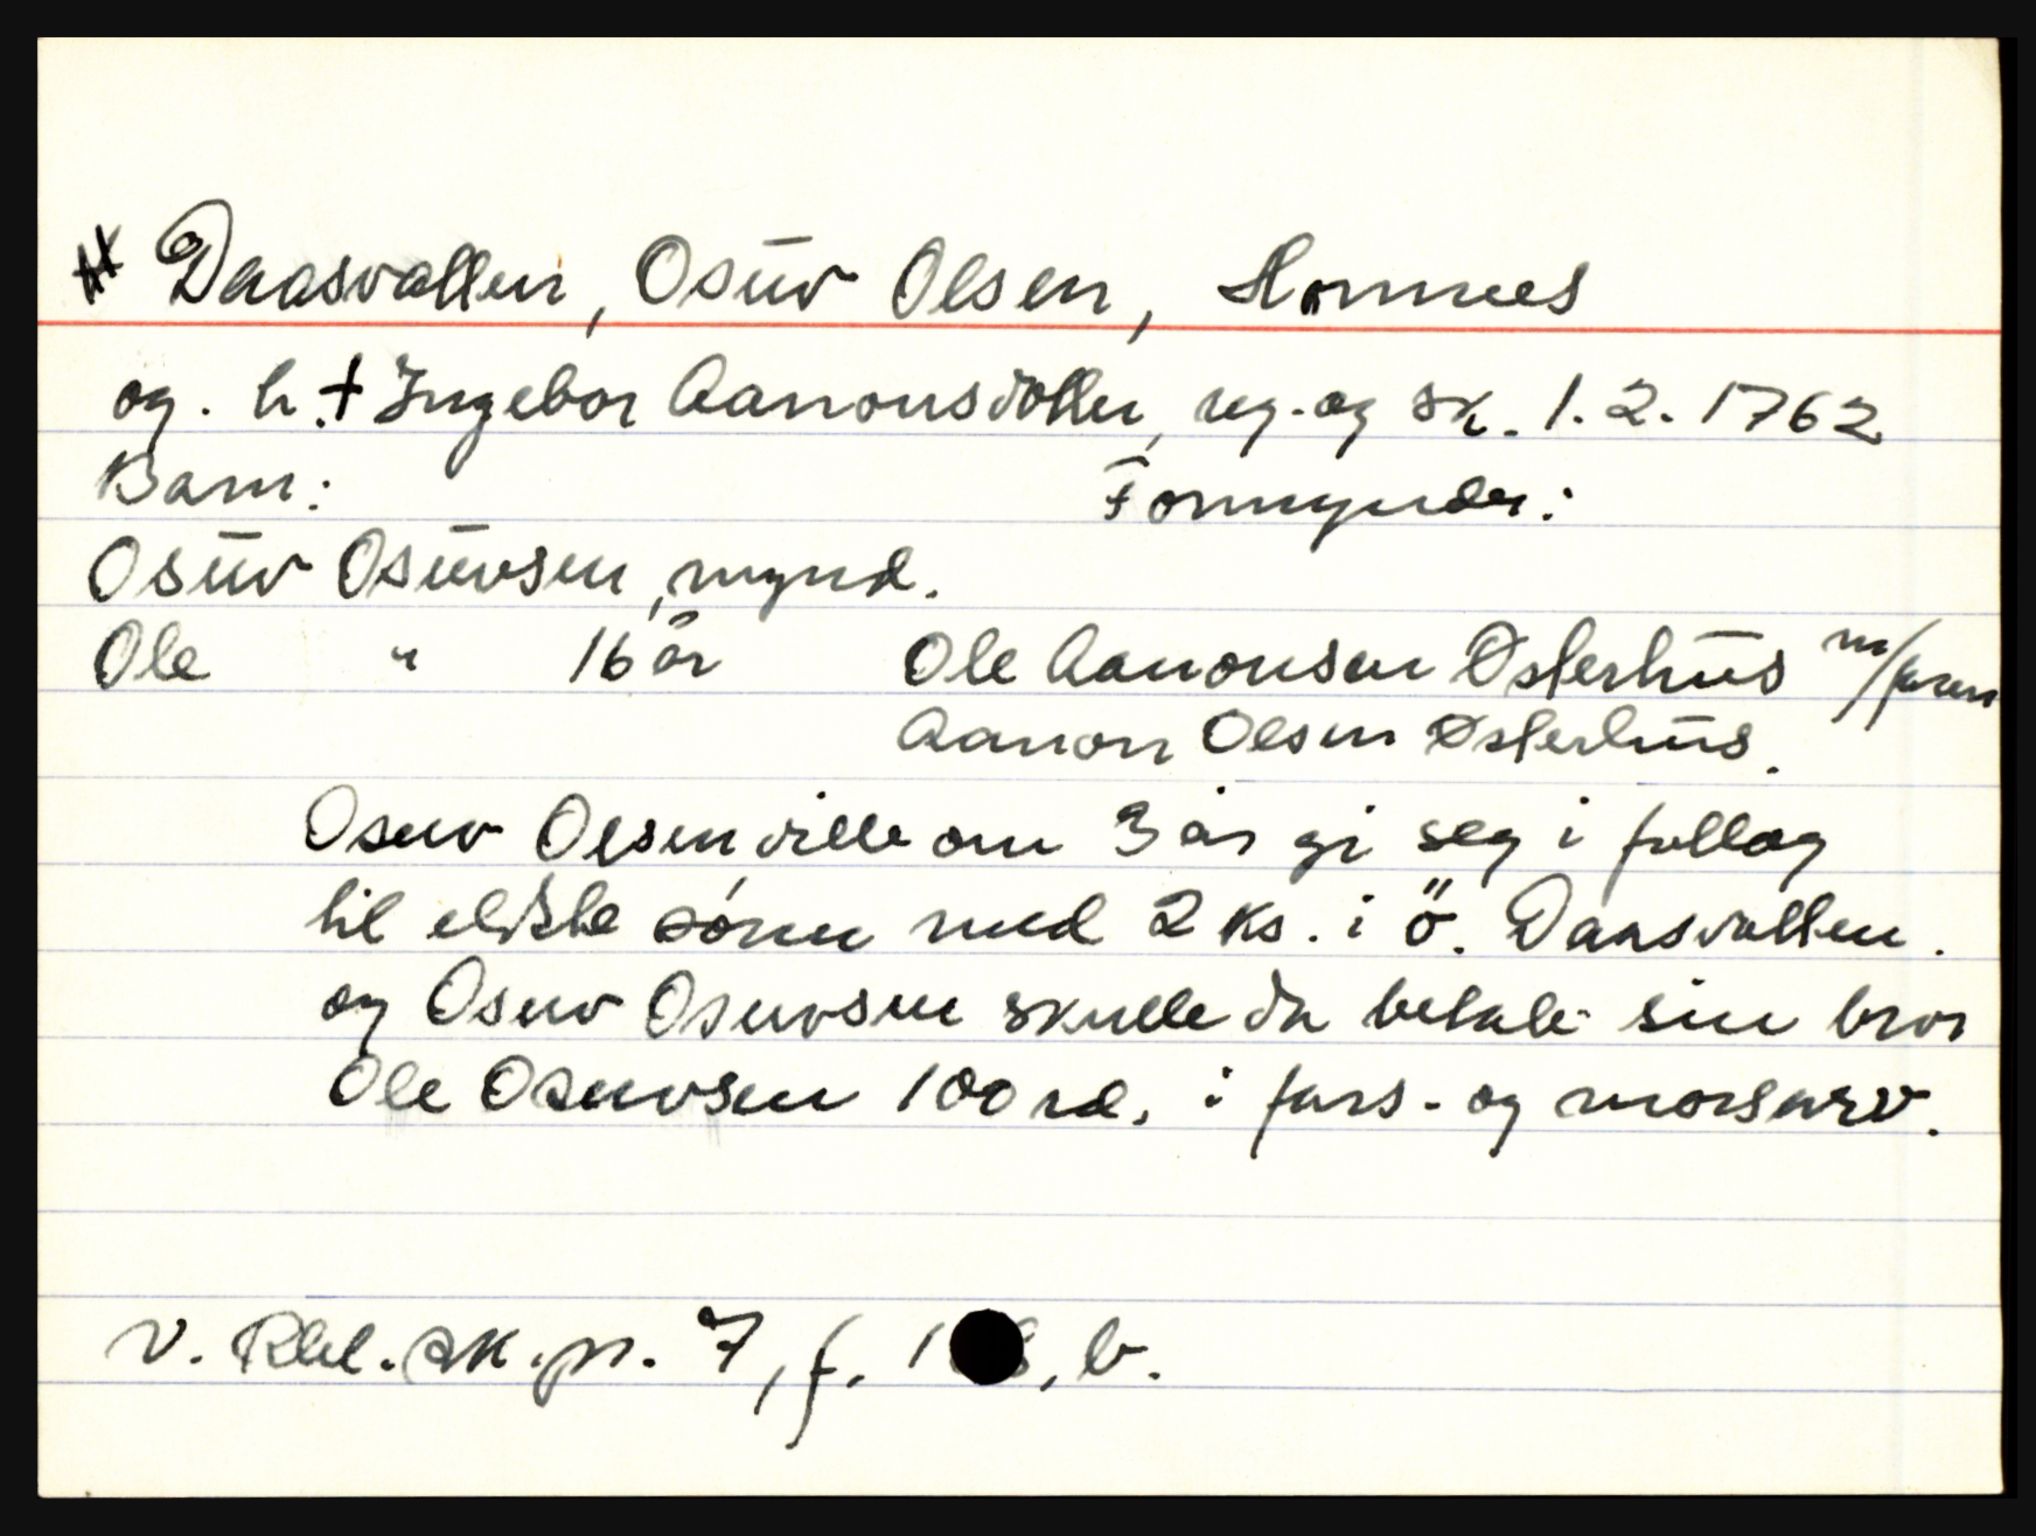 Daasvatten, Osuv Olsen, Hornnes
og. h. + Ingebor Aanonsdotter, reg. og sk. 1.2.1762
Barn: Formynder:
Osuv Osuvsen, mynd.
Ole " 16 år Ole Aanonsen Østerhus m/faren
Aanon Olsen Østerhus.
Osuv Olsen ville om 3 år gi seg i follog
til eldste sønn med 2 ks. i ö. Daasvatten.
og Osuv Osuvsen skulle da betale sin bror
Ole Osuvsen 100 rd. i fars- og morsarv.
V. Rbl. sk. pr. 7, f. 1 , b.